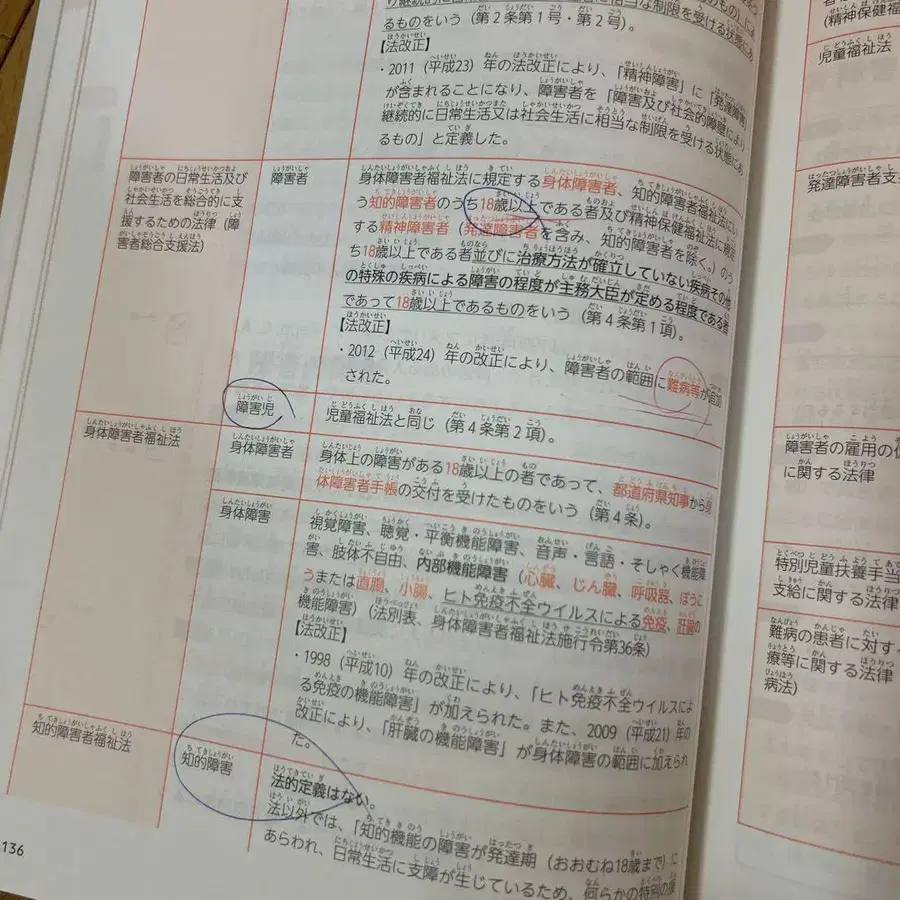 り継続的に日常生活又は社会生活に相当な制限を受ける状態にあ
るものをいう（第2条第1号・第2号）。
【法改正】
・2011（平成23）年の法改正により、「精神障害」に「発達障害」
が含まれることになり、障害者を「障害及び社会的障壁により
継続的に日常生活又は社会生活に相当な制限を受ける状態にあ
るもの」と定義した。
障害者の日常生活及び
社会生活を総合的に支
援するための法律（障
害者総合支援法）
障害者
身体障害者福祉法に規定する身体障害者、知的障害者福祉法にい
う知的障害者のうち18歳以上である者及び精神保健福祉法に規定
する精神障害者（発達障害者を含み、知的障害者を除く。）のう
ち18歳以上である者並びに治療方法が確立していない疾病その他
の特殊の疾病による障害の程度が主務大臣が定める程度である者
であって18歳以上であるものをいう（第4条第1項）。
【法改正】
・2012（平成24）年の改正により、障害者の範囲に難病等が追加
された。
障害児
児童福祉法と同じ（第4条第2項）。
身体障害者福祉法
身体障害者
身体上の障害がある18歳以上の者であって、都道府県知事から身
体障害者手帳の交付を受けたものをいう（第4条）。
身体障害
視覚障害、聴覚・平衡機能障害、音声・言語・そしゃく機能障
害、肢体不自由、内部機能障害（心臓、じん臓、呼吸器、ぼうこ
うまたは直腸、小腸、ヒト免疫不全ウイルスによる免疫、肝臓の
機能障害）（法別表、身体障害者福祉法施行令第36条）
【法改正】
・1998（平成10）年の改正により、「ヒト免疫不全ウイルスによ
る免疫の機能障害」が加えられた。また、2009（平成21）年の
改正により、「肝臓の機能障害」が身体障害の範囲に加えられ
た。
知的障害者福祉法
知的障害
法的定義はない。
法以外では、「知的機能の障害が発達期（おおむね18歳まで）に
あらわれ、日常生活に支障が生じているため、何らかの特別の援
136
（精神保健福
児童福祉法
発達障害者支
障害者の雇用の
に関する法律
特別児童扶養手当
支給に関する法律
難病の患者に対す
療等に関する法律
病法）